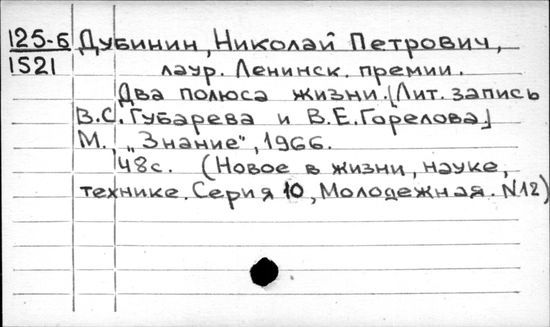 125-6 Дубинин, Николай Петрович,
1521 лаур. Ленинск. премии.
Два полюса жизни. [Лит. запись
В.С. Губарева и В.Е. Горелова]
М., „Знание", 1966.
48с. (Новое в жизни, науке,
технике. Серия 10, Молодежная. N12)